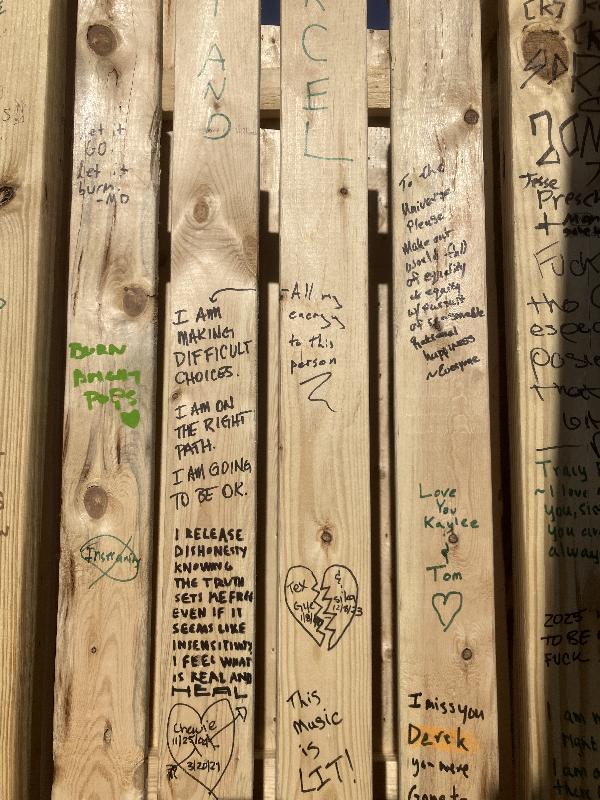 let it
GO.
let it
burn.
-MO
BURN
BRIGHT
POPS
Insanity
AND
I AM
MAKING
DIFFICULT
CHOICES.
I AM ON
THE RIGHT
PATH.
I AM GOING
TO BE OK.
I RELEASE
DISHONESTY
KNOWING
THE TRUTH
SETS ME FREE
EVEN IF IT
SEEMS LIKE
INSENSITIVITY
I FEEL WHAT
IS REAL AND
HEAL
Cherie
11/25/
3/20/21
CEL
All my
energy
to this
person
Tex &
Gue Silas
12/8/23
This
Music
is
LIT!
To the
Universe
Please
Make our
world full
of equality
& equity
w/ pursuit
of reasonable
Rational
happiness
~Everyone
Love
You
Kaylee
&
Tom
I miss you
Derek
you were
Gone to
[K]
ZOM
Jesse
Presc
+
Fuck
the
espec
posi
that
Tracy
~I love
you, sis
You are
alway
2025
TO BE
FUCK
I am
right
I am